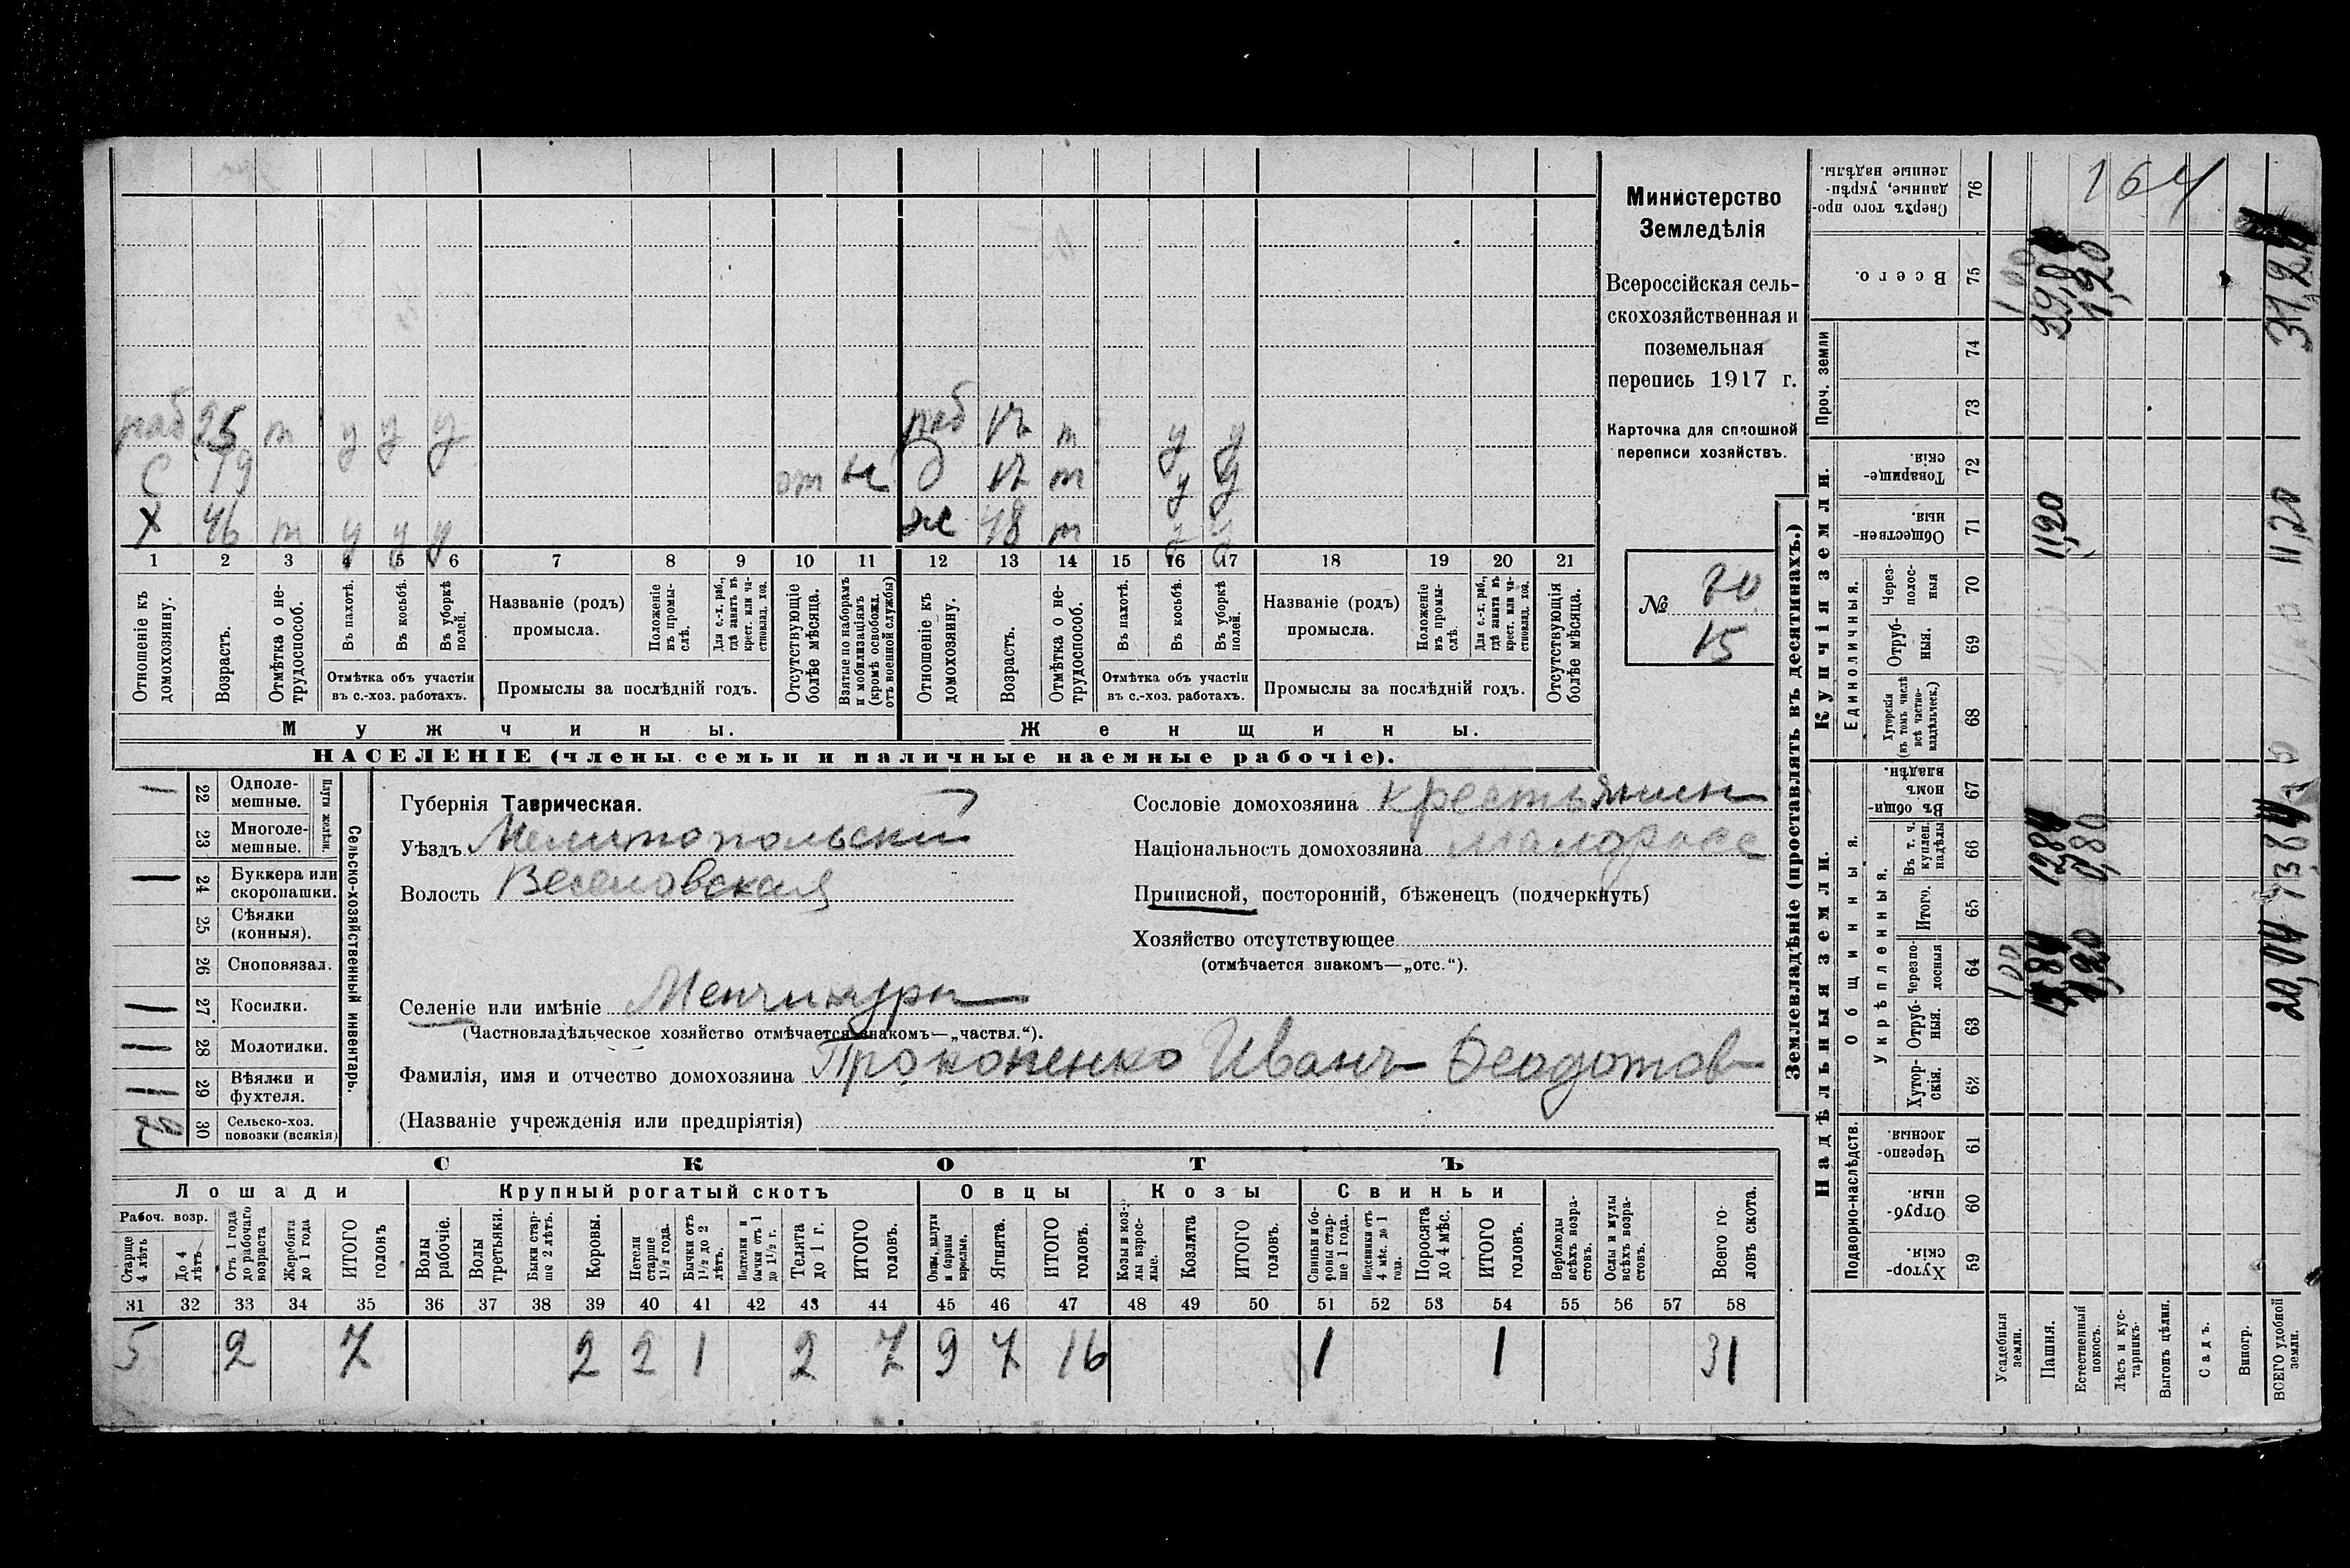 раб 25 т у у у раб 17 т у у
С 19 от н д 17 т у у
Х 46 т у у у ж 48 т у у
1 2 3 4 5 6 7 8 9 10 11 12 13 14 15 16 17 18 19 20 21
Отношеніе къ домохозяину.
Возрастъ.
Отмѣтка о не-трудоспособ.
Въ пахотѣ.
Въ косьбѣ.
Въ уборкѣ полей.
Отмѣтка объ участіи
въ с.-хоз. работахъ.
Названіе (родъ)
промысла.
Положеніе въ промы-слѣ.
Для с.-х. раб., гдѣ занятъ въ крест. или ча-стновлад. хоз.
Промыслы за послѣдній годъ.
Отсутствующіе болѣе мѣсяца.
Взятые по наборамъ и мобилизаціямъ (кромѣ освобожд. отъ военной службы)
Отношеніе къ домохозяину.
Возрастъ.
Отмѣтка о не-трудоспособ.
Въ пахотѣ.
Въ косьбѣ.
Въ уборкѣ полей.
Отмѣтка объ участіи
въ с.-хоз. работахъ.
Названіе (родъ)
промысла.
Положеніе въ промы-слѣ
Для с.-х. раб., гдѣ занята въ крест. или ча-стновлад. хоз.
Промыслы за послѣдній годъ.
Отсутствующія болѣе мѣсяца.
Мужчины.
Женщины.
НАСЕЛЕНІЕ (члены семьи и наличные наемные рабочіе).
Министерство
Земледѣлія
Всероссійская сель-
скохозяйственная и
поземельная
перепись 1917 г.
Карточка для сплошной
переписи хозяйствъ.
№
15
Сельско-хозяйственный инвентарь.
Плуги желѣзн.
1 22 Одноле-мешные.
23 Многоле-мешные.
1 24 Буккера или скоропашки.
25 Сѣялки (конныя).
26 Сноповязал.
1 27 Косилки.
1 28 Молотилки.
1 29 Вѣялки и фухтеля.
30 Сельско-хоз. повозки (всякія)
Губернія Таврическая.
Уѣздъ Мелитопольский
Волость Веселовская
Селеніе или имѣніе Менчикуры
(Частновладѣльческое хозяйство отмѣчается знакомъ—„частвл.“).
Фамилія, имя и отчество домохозяина Прокопенко Иванъ Феодотов
(Названіе учрежденія или предпріятія)
Сословіе домохозяина крестьянин
Національность домохозяина малоросс
Приписной, посторонній, бѣженецъ (подчеркнуть)
Хозяйство отсутствующее
(отмѣчается знакомъ—„отс.“).
СКОТЪ
Лошади
Крупный рогатый скотъ
Овцы
Козы
Свиньи
Рабоч. возр.
Старше 4 лѣтъ
До 4 лѣтъ
Отъ 1 года до рабочаго возраста
Жеребята до 1 года
ИТОГО головъ
Волы рабочіе.
Волы третьяки.
Быки стар-ше 2 лѣтъ.
Коровы.
Нетели старше 1½ года.
Бычки отъ 1½ до 2 лѣтъ.
Подтелки и бычки отъ 1 до 1½ г.
Телята до 1 г.
ИТОГО головъ.
Овцы, валухи и бараны взрослые.
Ягнята.
ИТОГО головъ.
Козы и коз-лы взрос-лые.
Козлята
ИТОГО головъ.
Свиньи и бо-ровы стар-ше 1 года.
Подсвинки отъ 4 мѣс. до 1 года.
Поросята до 4 мѣс.
ИТОГО головъ.
Верблюды всѣхъ возра-стовъ.
Ослы и мулы всѣхъ возра-стовъ.
Всего го-ловъ скота.
31 32 33 34 35 36 37 38 39 40 41 42 43 44 45 46 47 48 49 50 51 52 53 54 55 56 57 58
5 2 7 2 2 1 2 7 9 7 16 1 1 31
Землевладѣніе (проставлять въ десятинахъ.)
Надѣльныя земли.
Купчія земли.
Проч. земли
Подворно-наслѣдств.
Общинныя.
Укрѣпленныя.
Единоличныя.
Хутор-скія. 59
Отруб-ныя. 60
Черезпо-лосныя. 61
Хутор-скія. 62
Отруб-ныя. 63
Черезпо-лосныя 64
Итого. 65
Въ т. ч. куплен. надѣлы 66
Въ общи-номъ владѣн. 67
Хуторскія (въ томъ числѣ всѣ частно-владѣльческ.) 68
Отруб-ныя. 69
Через-полос-ныя 70
Обществен-ныя. 71
Товарище-скія. 72
73
74
Всего. 75
Сверхъ того про-данные, укрѣп-ленные надѣлы. 76
164
Усадебныя земли. 1 00
Пашня. 11,20
Естественный покосъ. 1,20
Лѣсъ и кус-тарникъ.
Выгонъ цѣлин.
Садъ.
Виногр.
ВСЕГО удобной земли. 20,04 11,20 31,24